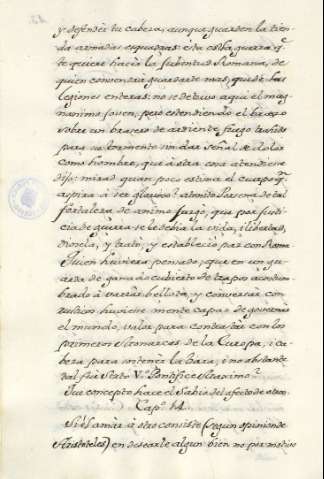 y defender tu cabeza; aunque guarden la tien
da armadas esquadras: esta es la guerra q.e
te quiere hacer la Jubentud Romana, de
quien conviene guardarte mas, que de las
legiones enteras: no se detuvo aqui el mag
nanimo joven, pero estendiendo el brazo
sobre un brasero de ardiente fuego
para su tormento sin dar señal de dolor
como hombre, que à otra cosa atendiese
dijo: miras quan poco estima el cuerpo q.n
aspira à ser glorioso? atonito Porsena de tal
fortaleza de animo juzgò, que por justi
cia de guerra se le debia la vida, i libertad,
diosela, y tratò, y establecio paz con Roma
Quien huviera pensado, que en un gu
arda de ganado cubierto de trapos acostum
brado à varear bellota, y conversar con
huviese mente capaz de governar
el mundo, valor para contrastar con los
primeros Monarcas de la Europa, i ca
beza para
tal fue Sixto V.o Pontifice Maximo?
Que concepto hace el Sabio del afecto de otro.
Cap.o 14.
Si el amàr à otro consiste (segun opinion de
Aristoteles) en desearle algun bien no por motivo